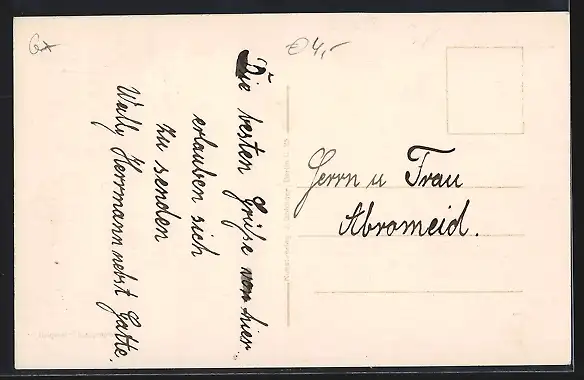 Die besten Grüße von hier
erlauben sich
zu senden
Wally Herrmann nebst Gatte.
Herrn u Frau
Abromeid.
€4,-